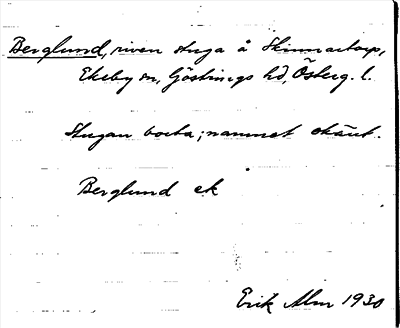 Berglund, riven stuga å Skinnartorp,
Ekeby sn, Göstrings hd, Österg. l.
Stugan borta; namnet okänt.
Berglund ek
Erik Alm 1930